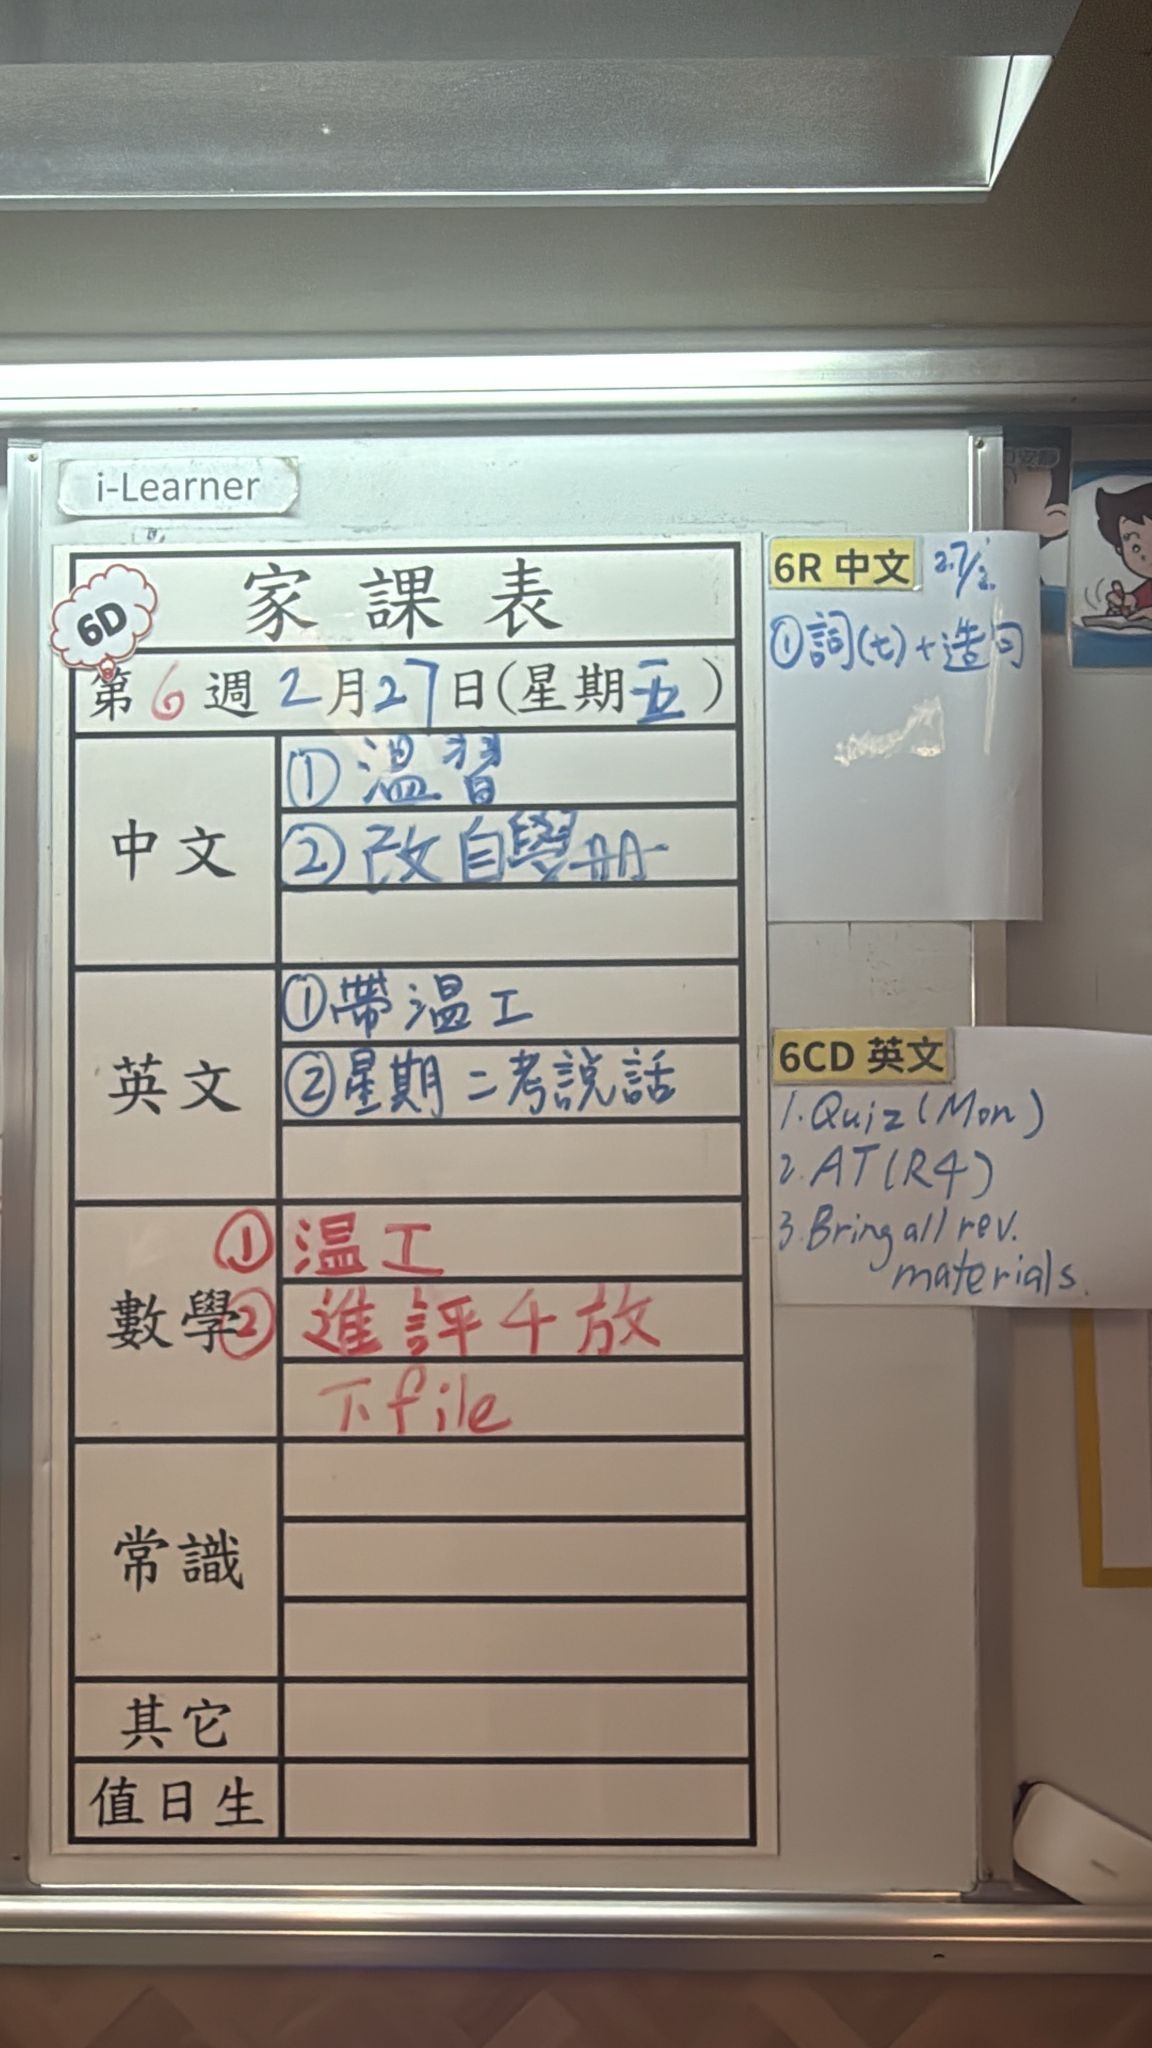 i-Learner
6D
家課表
第6週2月27日(星期五)
中文
①温習
②改自學册
英文
①帶温工
②星期二考說話
數學
①温工
②進評4放
下file
常識
其它
值日生
6R 中文 27/2
①詞(七)+造句
6CD 英文
1. Quiz (Mon)
2. AT (R4)
3. Bring all rev.
materials.